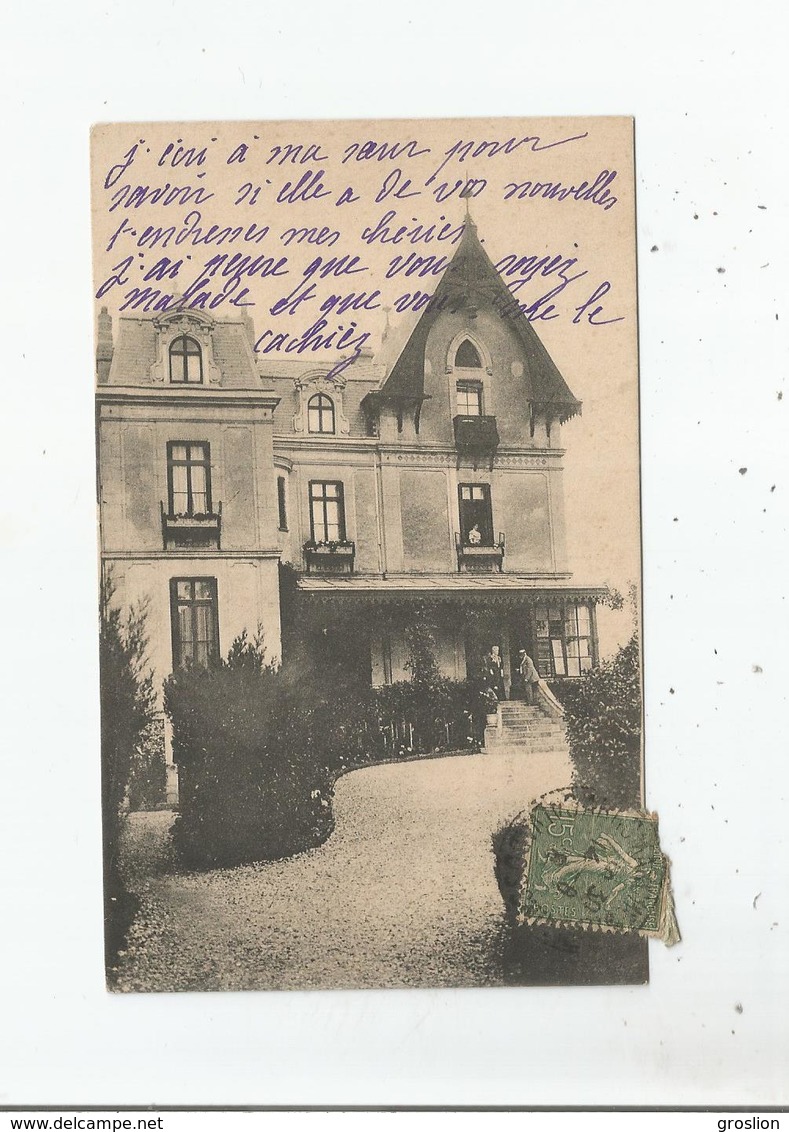 j. écri à ma sœur pour
savoir si elle a de vos nouvelles
t-endresses mes chéries.
j. ai peure que vous soyez
malade et que vous me le
cachiéz
15c
groslion